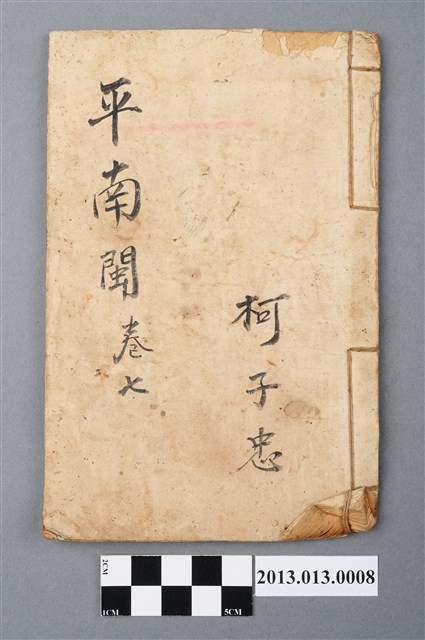 平南閩卷七
柯子忠
2CM
1CM
5CM
2013.013.0008